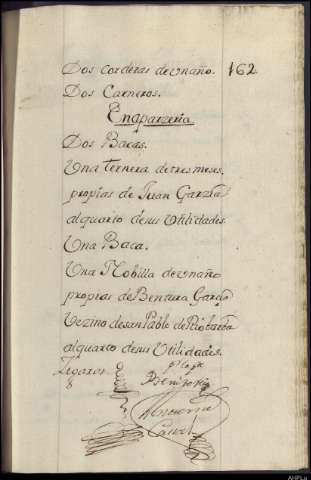 162
Dos corderas de un año.
Dos Carneros.
En aparzeria
Dos Bacas.
Una ternera de tres meses,
propias de Juan Garzia
al quarto de sus Utilidades.
Una Baca.
Una Nobilla de un año
propias de Bentura Garzia
Vezino de san Pablo de Riobarba
al quarto de sus Utilidades.
8
AHPLu